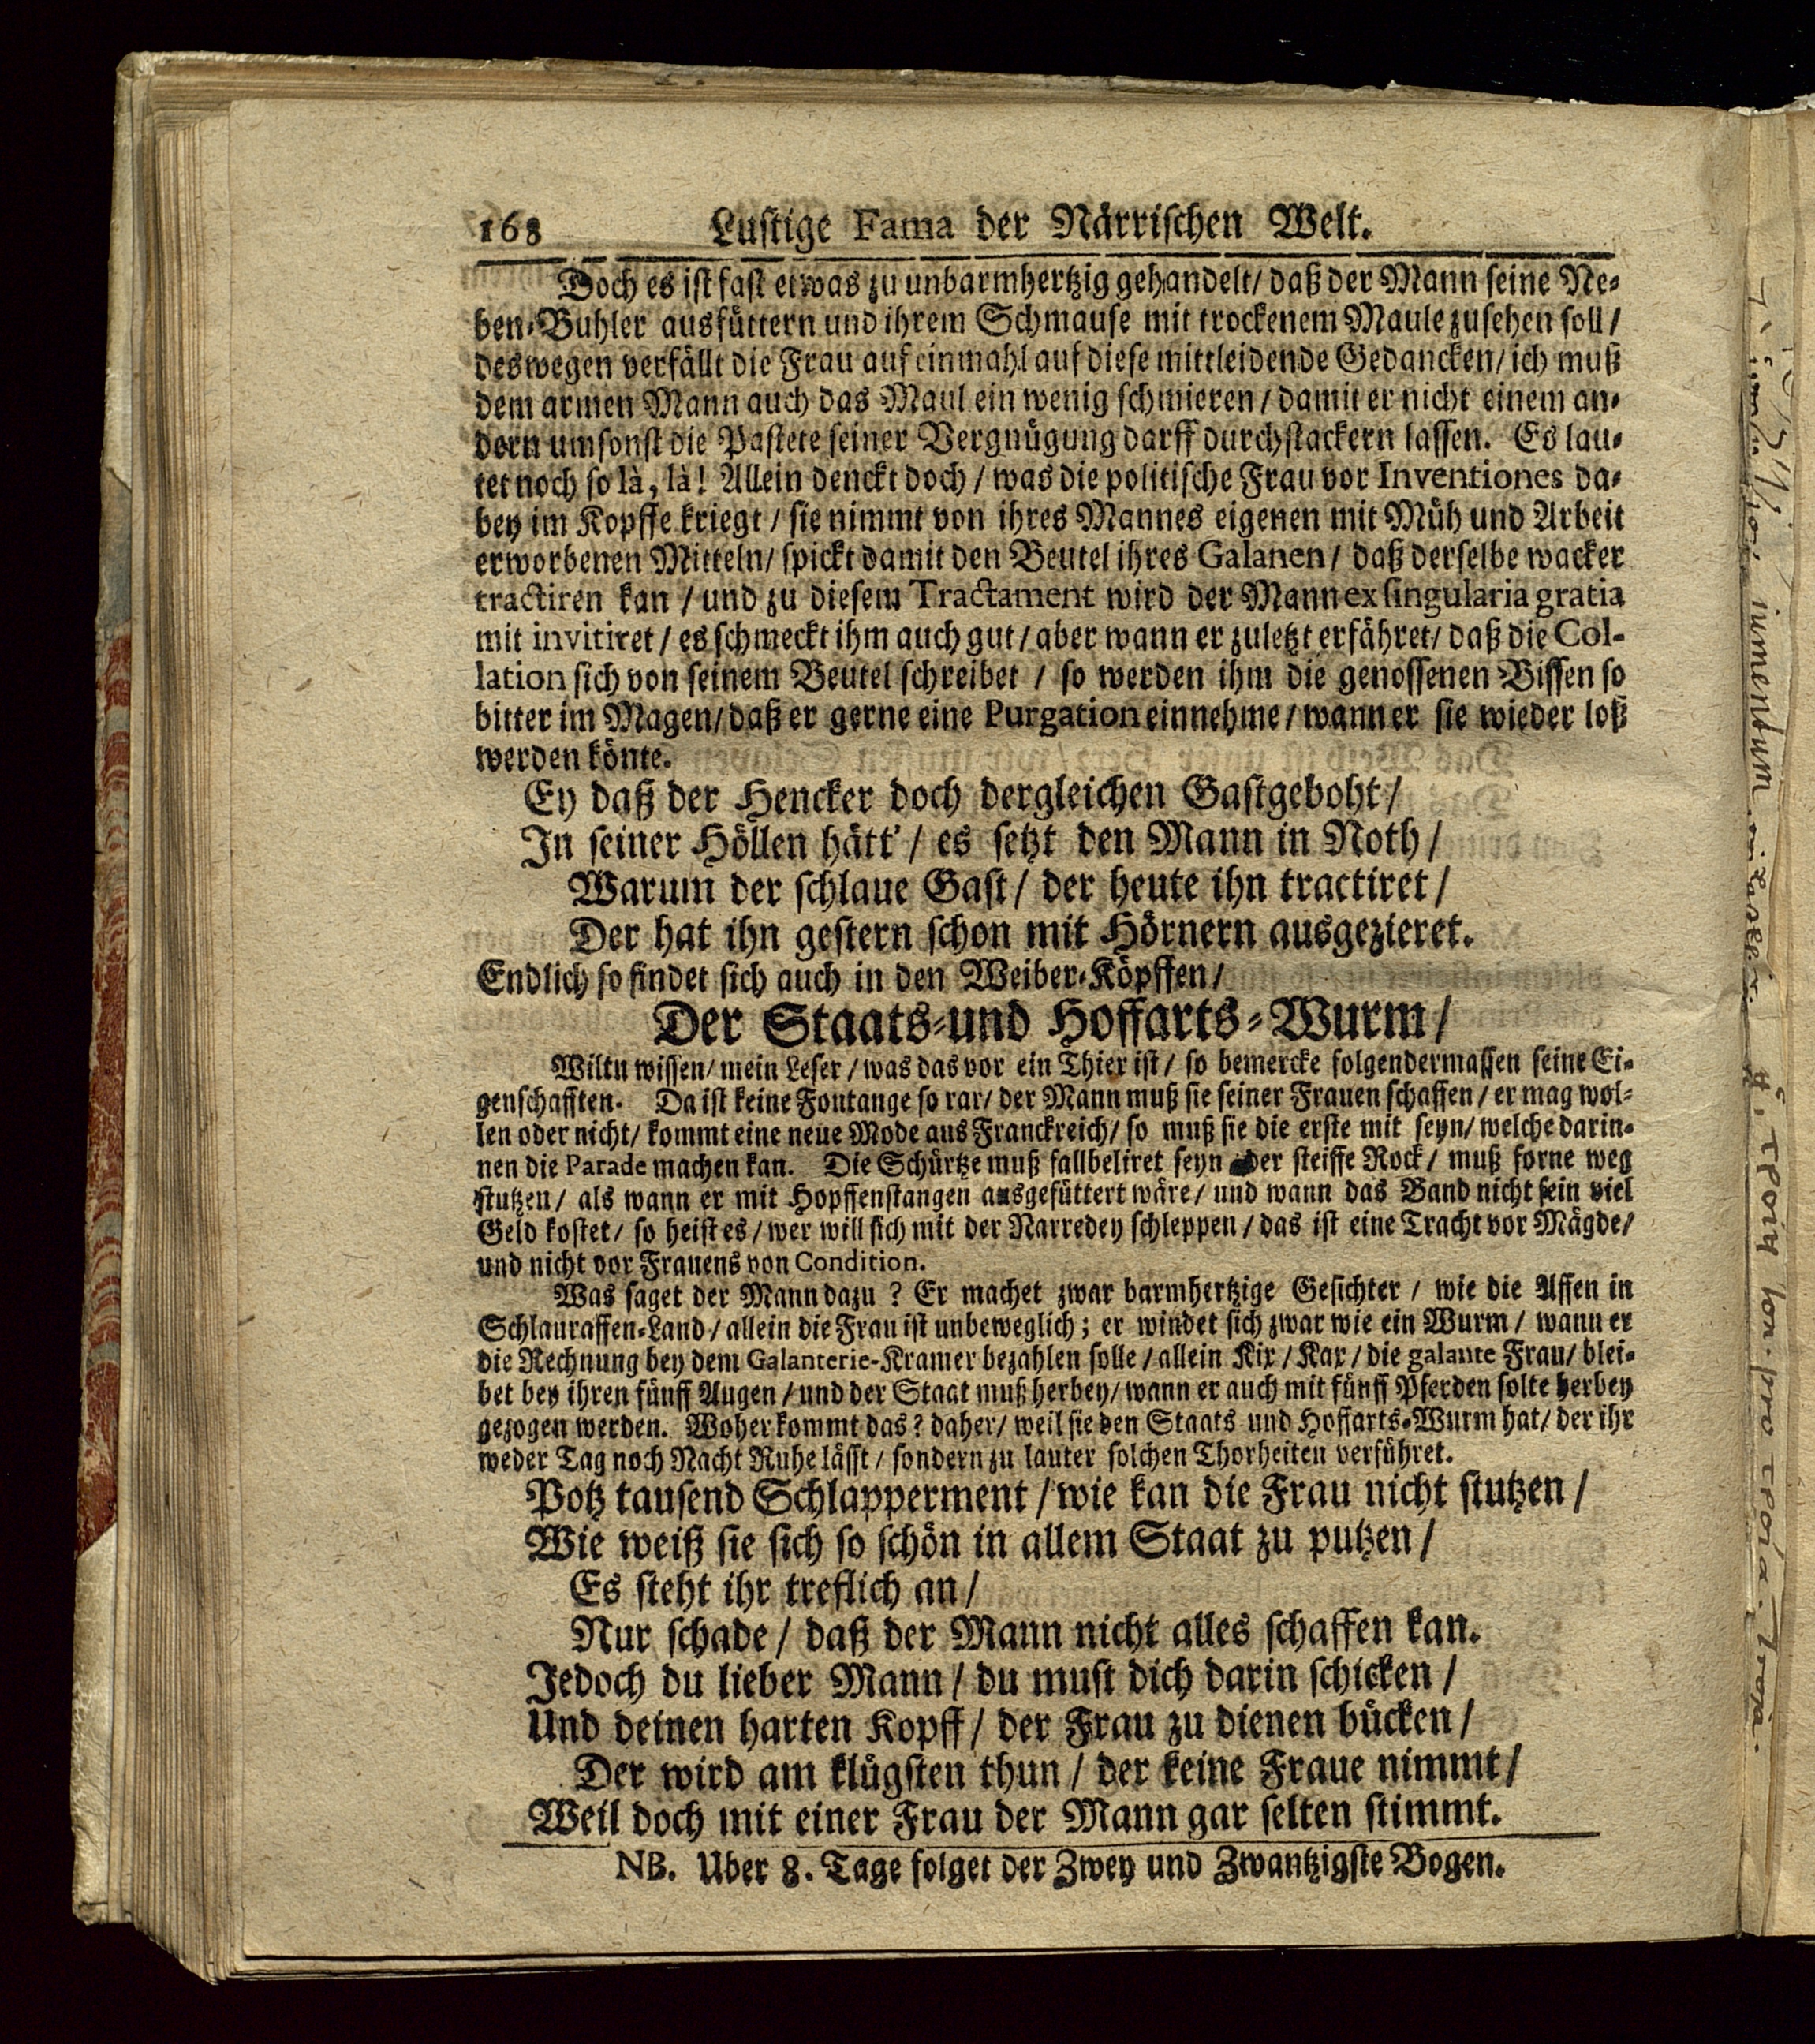 168 Lustige Fama der Närrischen Welt.
Doch es ist fast etwas zu unbarmhertzig gehandelt/ daß der Mann seine Ne-
ben-Buhler ausfüttern und ihrem Schmause mit trockenem Maule zusehen soll/
deswegen verfällt die Frau auf einmahl auf diese mittleidende Gedancken/ ich muß
dem armen Mann auch das Maul ein wenig schmieren/ damit er nicht einem an-
dern umsonst die Pastete seiner Vergnügung darff durchstackern lassen. Es lau-
tet noch so là, là! Allein denckt doch/ was die politische Frau vor Inventiones da-
bey im Kopffe kriegt/ sie nimmt von ihres Mannes eigenen mit Müh und Arbeit
erworbenen Mitteln/ spickt damit den Beutel ihres Galanen/ daß derselbe wacker
tractiren kan/ und zu diesem Tractament wird der Mann ex singularia gratia
mit invitiret/ es schmeckt ihm auch gut/ aber wann er zuletzt erfähret/ daß die Col-
lation sich von seinem Beutel schreibet/ so werden ihm die genossenen Bissen so
bitter im Magen/ daß er gerne eine Purgation einnehme/ wann er sie wieder loß
werden könte.
Ey daß der Hencker doch dergleichen Gastgeboht/
In seiner Höllen hätt'/ es setzt den Mann in Noth/
Warum der schlaue Gast/ der heute ihn tractiret/
Der hat ihn gestern schon mit Hörnern ausgezieret.
Endlich so findet sich auch in den Weiber-Köpffen/
Der Staats-und Hoffarts-Wurm/
Wiltu wissen/ mein Leser/ was das vor ein Thier ist/ so bemercke folgendermassen seine Ei-
genschafften. Da ist keine Fontange so rar/ der Mann muß sie seiner Frauen schaffen/ er mag wol-
len oder nicht/ kommt eine neue Mode aus Franckreich/ so muß sie die erste mit seyn/ welche darin-
nen die Parade machen kan. Die Schürtze muß fallbeliret seyn der steiffe Rock/ muß forne weg
stutzen/ als wann er mit Hopffenstangen ausgefüttert wäre/ und wann das Band nicht fein viel
Geld kostet/ so heist es/ wer will sich mit der Narredey schleppen/ das ist eine Tracht vor Mägde/
und nicht vor Frauens von Condition.
Was saget der Mann dazu? Er machet zwar barmhertzige Gesichter/ wie die Affen in
Schlauraffen-Land/ allein die Frau ist unbeweglich; er windet sich zwar wie ein Wurm/ wann er
die Rechnung bey dem Galanterie-Kramer bezahlen solle/ allein Kix/ Kax/ die galante Frau/ blei-
bet bey ihren fünff Augen/ und der Staat muß herbey/ wann er auch mit fünff Pferden solte herbey
gezogen werden. Woher kommt das? daher/ weil sie den Staats und Hoffarts-Wurm hat/ der ihr
weder Tag noch Nacht Ruhe lässt/ sondern zu lauter solchen Thorheiten verführet.
Potz tausend Schlapperment/ wie kan die Frau nicht stutzen/
Wie weiß sie sich so schön in allem Staat zu putzen/
Es steht ihr treflich an/
Nur schade/ daß der Mann nicht alles schaffen kan.
Jedoch du lieber Mann/ du must dich darin schicken/
Und deinen harten Kopff/ der Frau zu dienen bücken/
Der wird am klügsten thun/ der keine Fraue nimmt/
Weil doch mit einer Frau der Mann gar selten stimmt.
NB. Uber 8. Tage folget der Zwey und Zwantzigste Bogen.